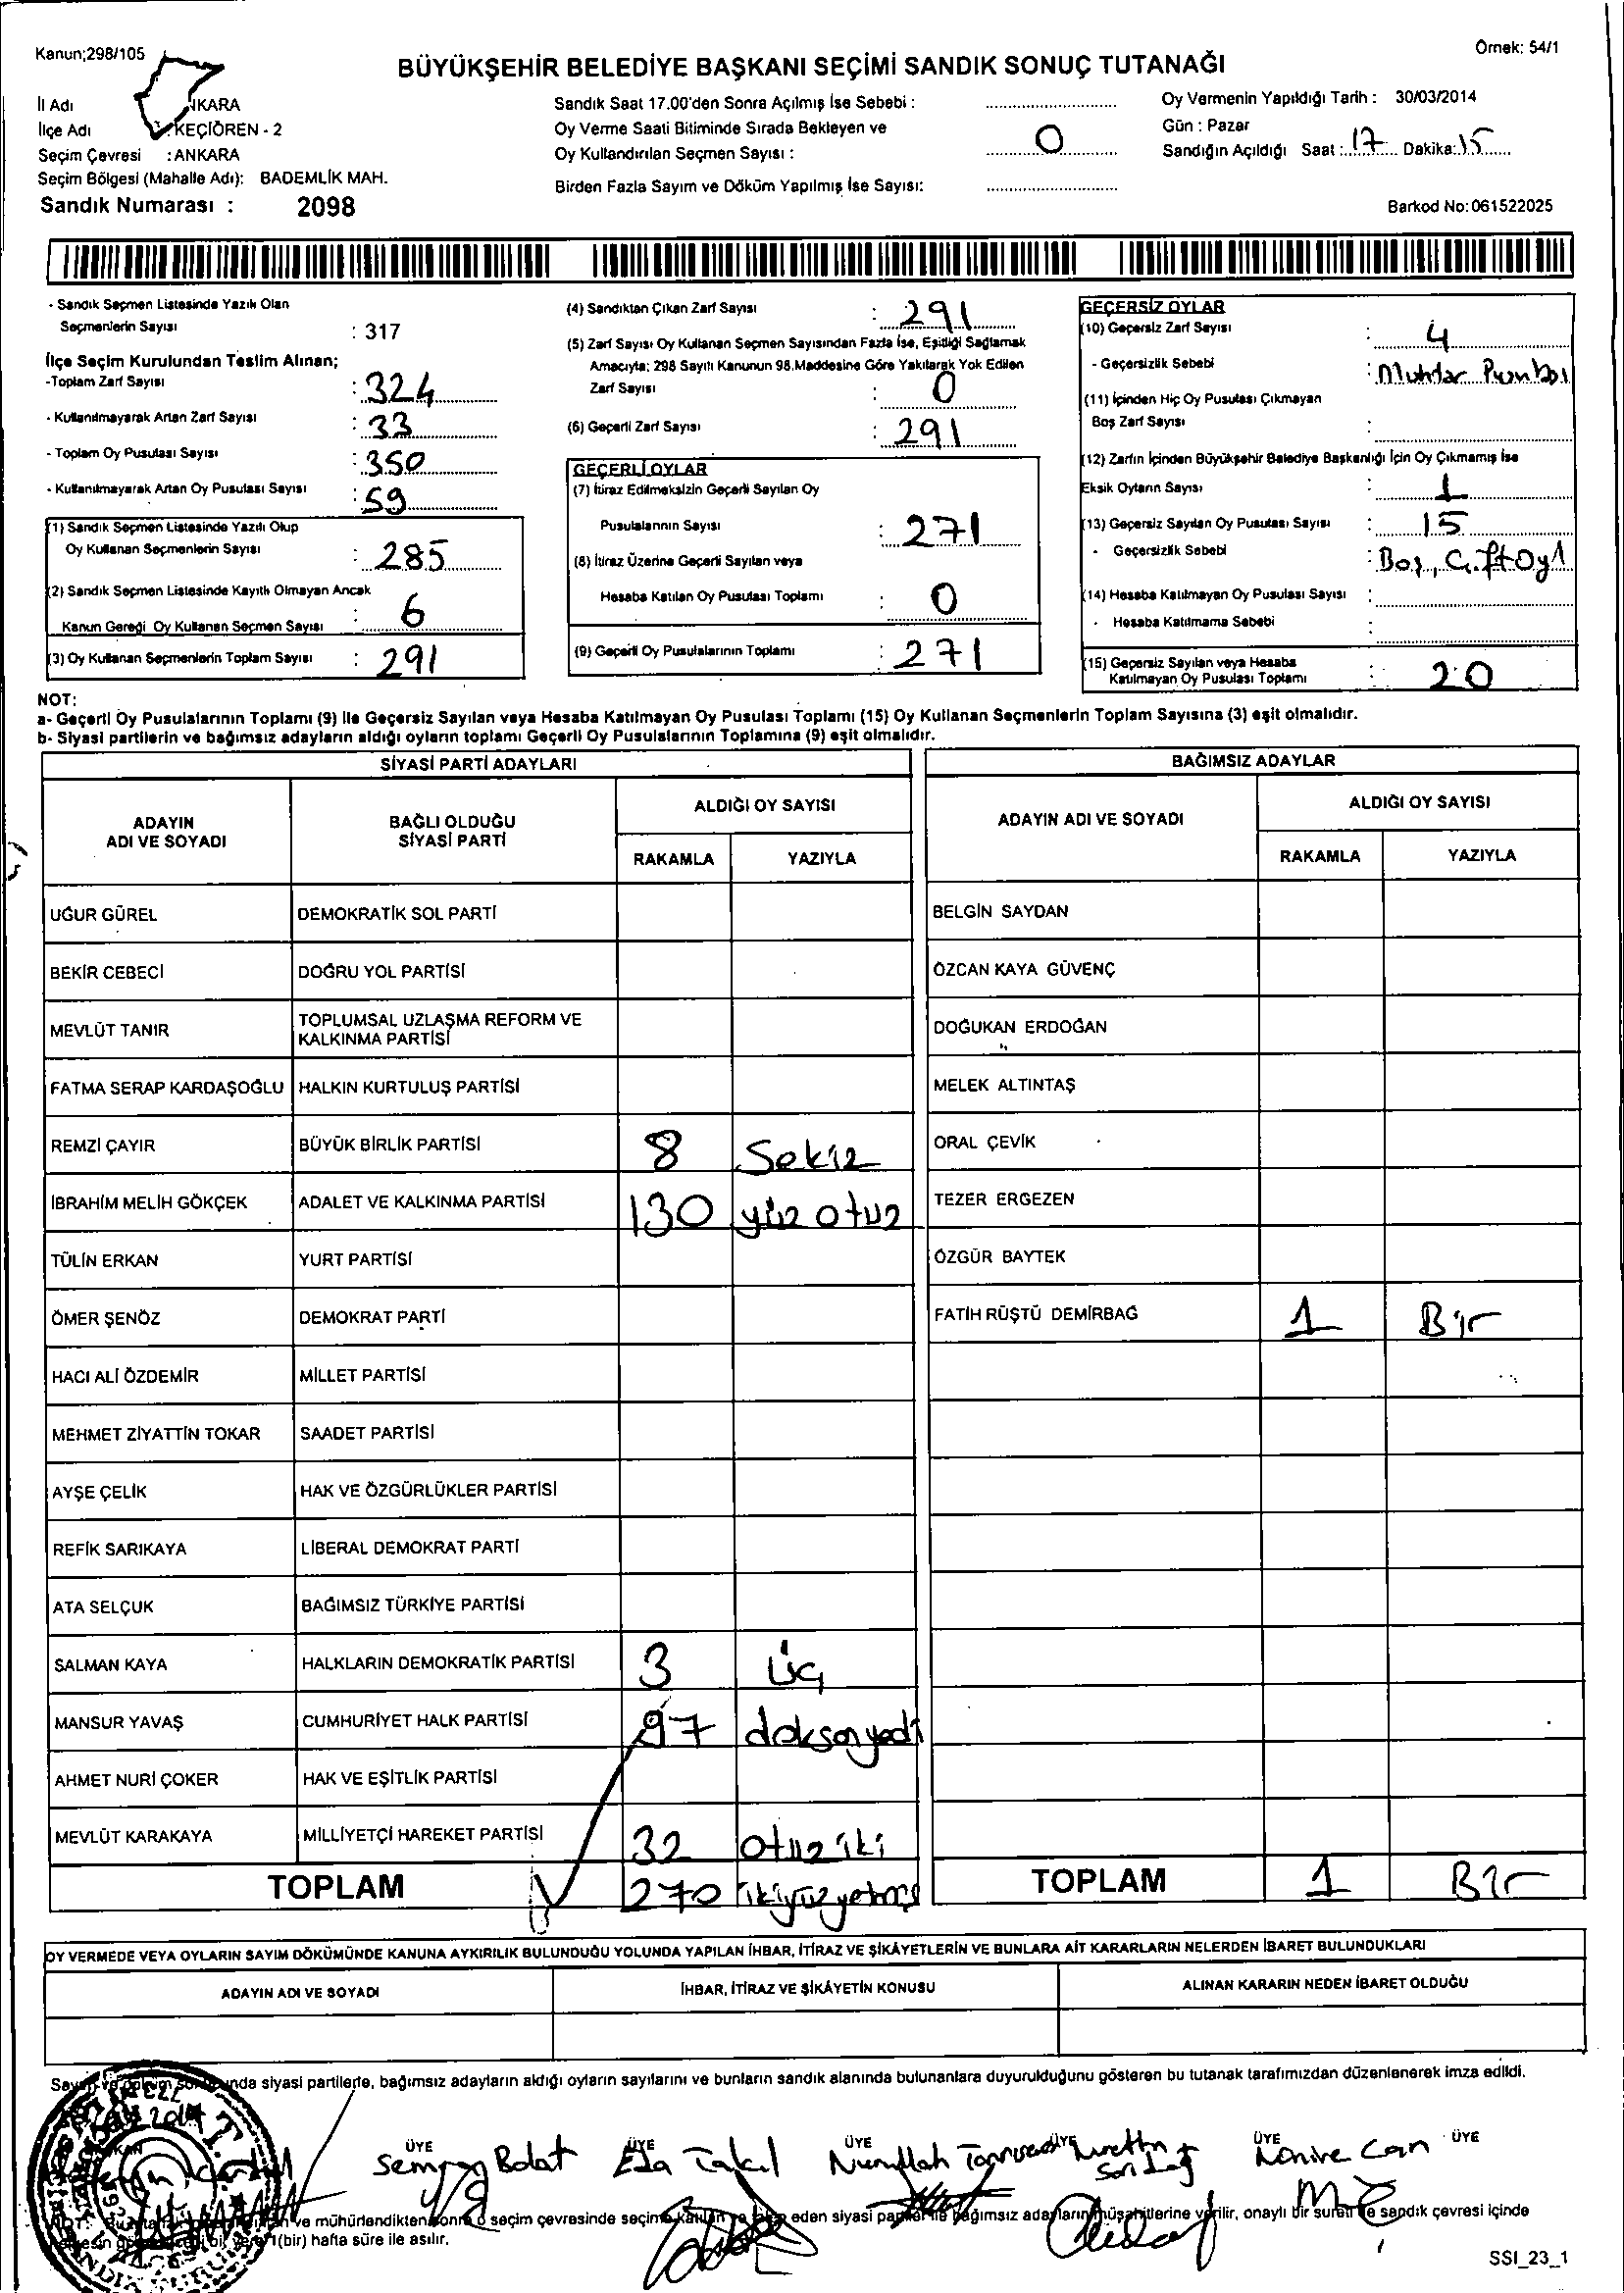 Kanun;298/105
Örnek: 54/1
BÜYÜKŞEHİR BELEDİYE BAŞKANI SEÇİMİ SANDIK SONUÇ TUTANAĞI
İl Adı NKARA
İlçe Adı : KEÇİÖREN - 2
Seçim Çevresi : ANKARA
Seçim Bölgesi (Mahalle Adı): BADEMLİK MAH.
Sandık Numarası : 2098
Sandık Saat 17.00'den Sonra Açılmış İse Sebebi :
Oy Verme Saati Bitiminde Sırada Bekleyen ve
Oy Kullandırılan Seçmen Sayısı : 0
Birden Fazla Sayım ve Döküm Yapılmış İse Sayısı:
Oy Vermenin Yapıldığı Tarih : 30/03/2014
Gün : Pazar
Sandığın Açıldığı Saat : 17 Dakika: 15
Barkod No: 061522025
- Sandık Seçmen Listesinde Yazılı Olan
Seçmenlerin Sayısı : 317
İlçe Seçim Kurulundan Teslim Alınan;
-Toplam Zarf Sayısı : 324
- Kullanılmayarak Artan Zarf Sayısı : 33
- Toplam Oy Pusulası Sayısı : 350
- Kullanılmayarak Artan Oy Pusulası Sayısı : 59
(1) Sandık Seçmen Listesinde Yazılı Olup
Oy Kullanan Seçmenlerin Sayısı : 285
(2) Sandık Seçmen Listesinde Kayıtlı Olmayan Ancak
Kanun Gereği Oy Kullanan Seçmen Sayısı : 6
(3) Oy Kullanan Seçmenlerin Toplam Sayısı : 291
(4) Sandıktan Çıkan Zarf Sayısı : 291
(5) Zarf Sayısı Oy Kullanan Seçmen Sayısından Fazla İse, Eşitliği Sağlamak
Amacıyla; 298 Sayılı Kanunun 98.Maddesine Göre Yakılarak Yok Edilen
Zarf Sayısı : 0
(6) Geçerli Zarf Sayısı : 291
GEÇERLİ OYLAR
(7) İtiraz Edilmeksizin Geçerli Sayılan Oy
Pusulalarının Sayısı : 271
(8) İtiraz Üzerine Geçerli Sayılan veya
Hesaba Katılan Oy Pusulası Toplamı : 0
(9) Geçerli Oy Pusulalarının Toplamı : 271
GEÇERSİZ OYLAR
(10) Geçersiz Zarf Sayısı : 4
- Geçersizlik Sebebi : Muhtar
(11) İçinden Hiç Oy Pusulası Çıkmayan
Boş Zarf Sayısı :
(12) Zarfın İçinden Büyükşehir Belediye Başkanlığı İçin Oy Çıkmamış İse
Eksik Oyların Sayısı : 1
(13) Geçersiz Sayılan Oy Pusulası Sayısı : 15
- Geçersizlik Sebebi : Boş, Çift Oy
(14) Hesaba Katılmayan Oy Pusulası Sayısı :
- Hesaba Katılmama Sebebi :
(15) Geçersiz Sayılan veya Hesaba
Katılmayan Oy Pusulası Toplamı : 20
NOT:
a- Geçerli Oy Pusulalarının Toplamı (9) ile Geçersiz Sayılan veya Hesaba Katılmayan Oy Pusulası Toplamı (15) Oy Kullanan Seçmenlerin Toplam Sayısına (3) eşit olmalıdır.
b- Siyasi partilerin ve bağımsız adayların aldığı oyların toplamı Geçerli Oy Pusulalarının Toplamına (9) eşit olmalıdır.
SİYASİ PARTİ ADAYLARI
ADAYIN
ADI VE SOYADI
BAĞLI OLDUĞU
SİYASİ PARTİ
ALDIĞI OY SAYISI
RAKAMLA YAZIYLA
UĞUR GÜREL DEMOKRATİK SOL PARTİ
BEKİR CEBECİ DOĞRU YOL PARTİSİ
MEVLÜT TANIR TOPLUMSAL UZLAŞMA REFORM VE
KALKINMA PARTİSİ
FATMA SERAP KARDAŞOĞLU HALKIN KURTULUŞ PARTİSİ
REMZİ ÇAYIR BÜYÜK BİRLİK PARTİSİ 8 Sekiz
İBRAHİM MELİH GÖKÇEK ADALET VE KALKINMA PARTİSİ 130 yüz otuz
TÜLİN ERKAN YURT PARTİSİ
ÖMER ŞENÖZ DEMOKRAT PARTİ
HACI ALİ ÖZDEMİR MİLLET PARTİSİ
MEHMET ZİYATTİN TOKAR SAADET PARTİSİ
AYŞE ÇELİK HAK VE ÖZGÜRLÜKLER PARTİSİ
REFİK SARIKAYA LİBERAL DEMOKRAT PARTİ
ATA SELÇUK BAĞIMSIZ TÜRKİYE PARTİSİ
SALMAN KAYA HALKLARIN DEMOKRATİK PARTİSİ 3 üç
MANSUR YAVAŞ CUMHURİYET HALK PARTİSİ 97 doksanyedi
AHMET NURİ ÇOKER HAK VE EŞİTLİK PARTİSİ
MEVLÜT KARAKAYA MİLLİYETÇİ HAREKET PARTİSİ 32 otuz iki
TOPLAM 270 ikiyüzyetmiş
BAĞIMSIZ ADAYLAR
ADAYIN ADI VE SOYADI
ALDIĞI OY SAYISI
RAKAMLA YAZIYLA
BELGİN SAYDAN
ÖZCAN KAYA GÜVENÇ
DOĞUKAN ERDOĞAN
MELEK ALTINTAŞ
ORAL ÇEVİK
TEZER ERGEZEN
ÖZGÜR BAYTEK
FATİH RÜŞTÜ DEMİRBAĞ 1 Bir
TOPLAM 1 Bir
OY VERMEDE VEYA OYLARIN SAYIM DÖKÜMÜNDE KANUNA AYKIRILIK BULUNDUĞU YOLUNDA YAPILAN İHBAR, İTİRAZ VE ŞİKÂYETLERİN VE BUNLARA AİT KARARLARIN NELERDEN İBARET BULUNDUKLARI
ADAYIN ADI VE SOYADI İHBAR, İTİRAZ VE ŞİKÂYETİN KONUSU ALINAN KARARIN NEDEN İBARET OLDUĞU
siyasi partilerle, bağımsız adayların aldığı oyların sayılarını ve bunların sandık alanında bulunanlara duyurulduğunu gösteren bu tutanak tarafımızdan düzenlenerek imza edildi.
ÜYE ÜYE ÜYE ÜYE ÜYE ÜYE
Bolat Nurullah Can
ve mühürlendikten sonra o seçim çevresinde seçime katılan ve eden siyasi partiler ile bağımsız adayların müşahitlerine verilir, onaylı bir sureti de sandık çevresi içinde
1(bir) hafta süre ile asılır.
SSI_23_1